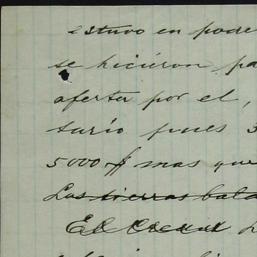 estuvo en pode
se hicieron pa
aferta por el,
turio pues 3
5000 $ mas que
Las tierras bala
El